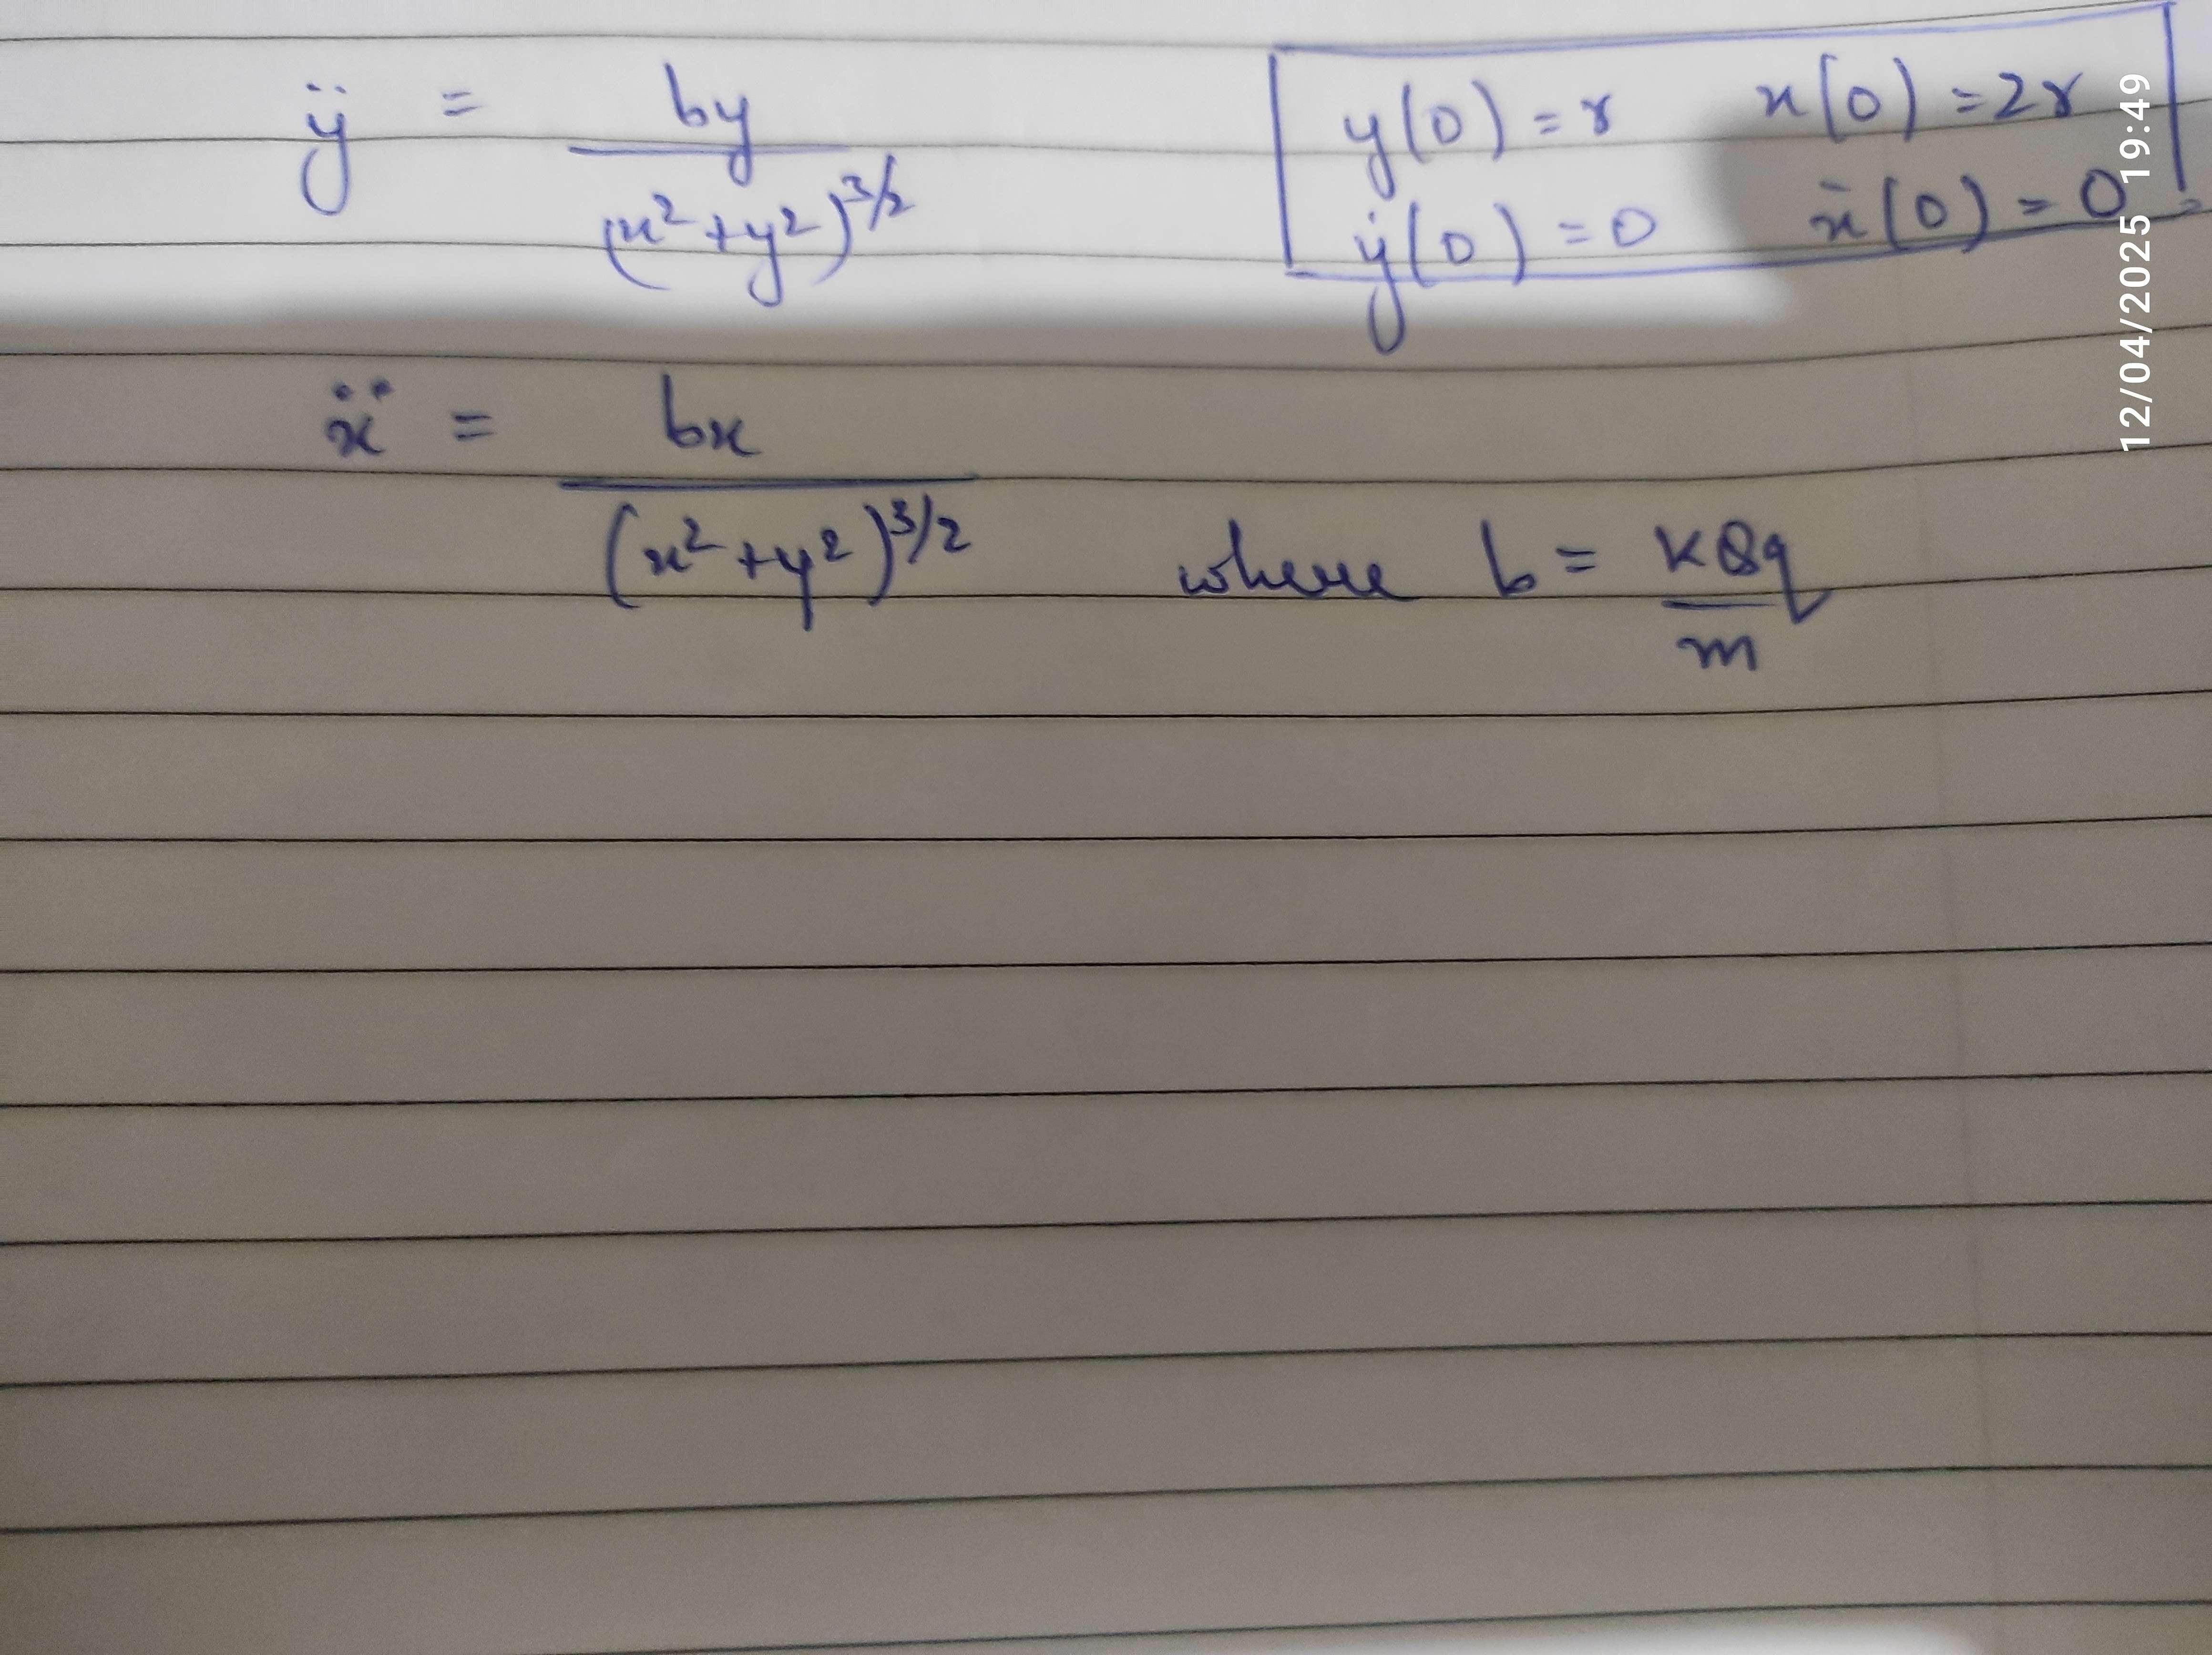 ÿ = by / (x² + y²)^3/2
y(0) = r x(0) = 2r
ẏ(0) = 0 ẋ(0) = 0
ẍ = bx / (x² + y²)^3/2 where b = KQq / m
12/04/2025 19:49